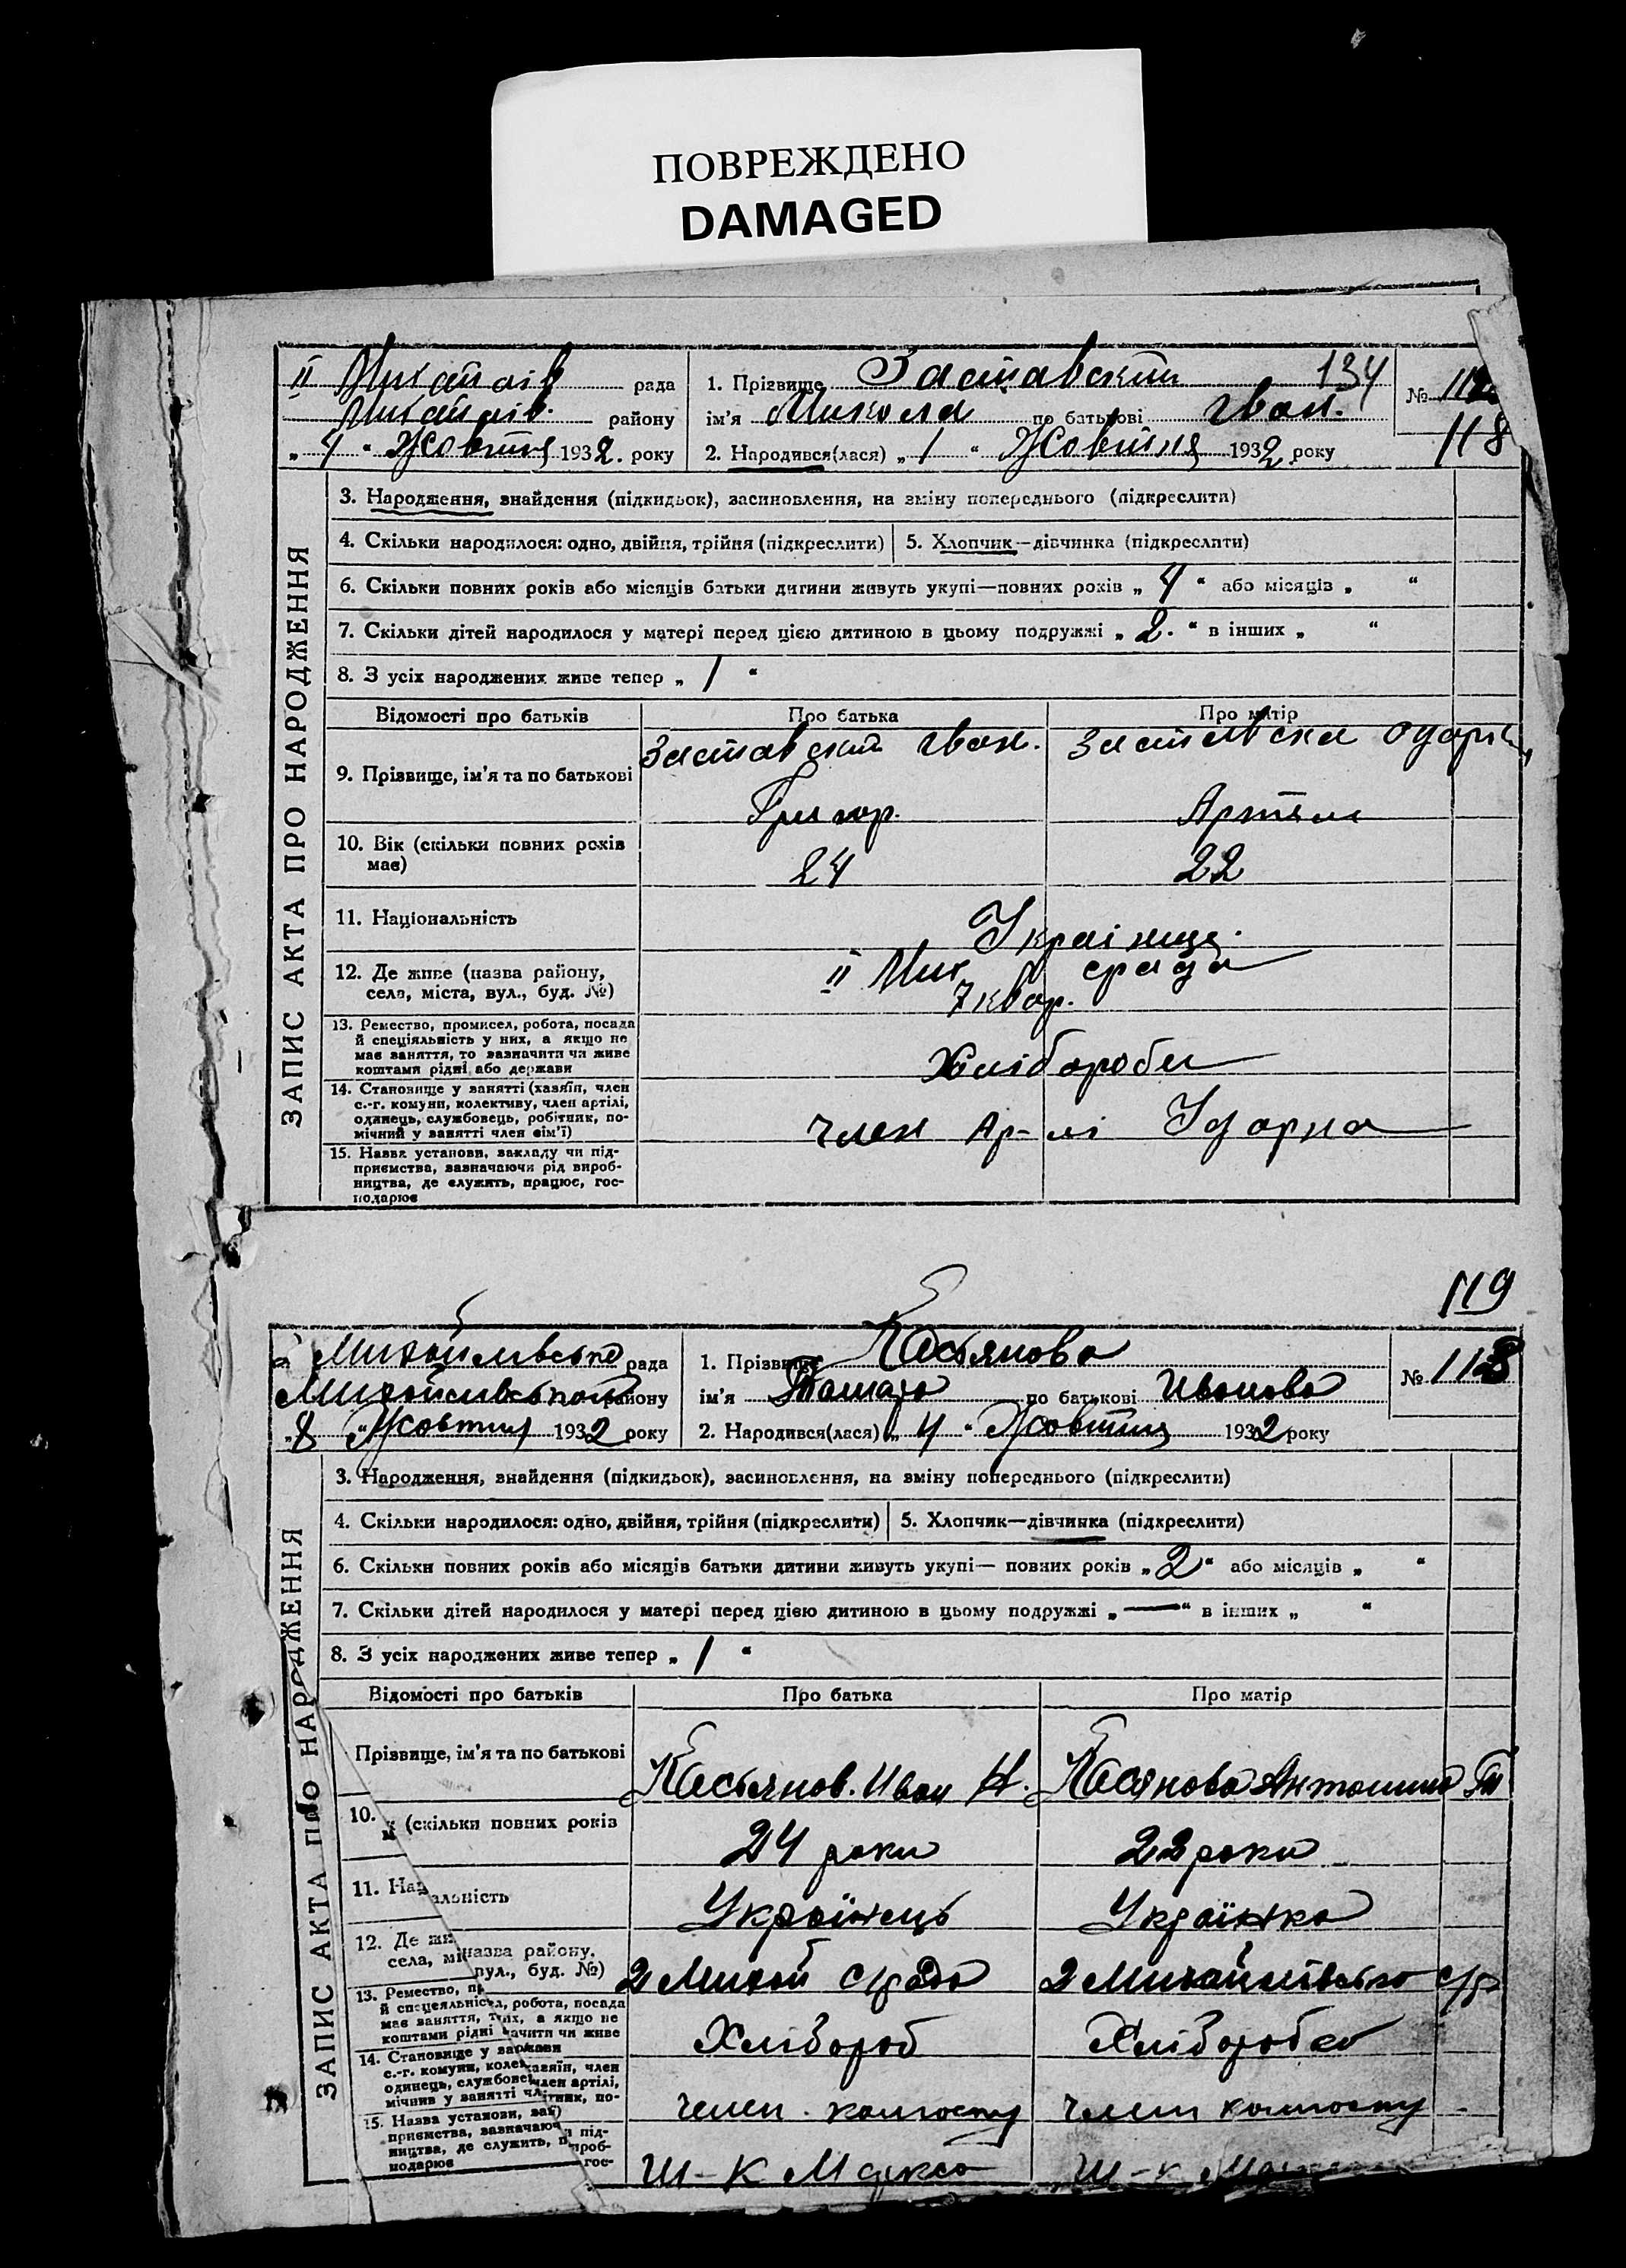 ПОВРЕЖДЕНО
DAMAGED
II Михайлів рада
Михайлів. району
„ 4 “ Жовтня 1932. року
1. Прізвище Заставский 134
ім'я Микола по батькові Іван.
2. Народився(лася) „ 1 “ Жовтня 1932 року
№
118
ЗАПИС АКТА ПРО НАРОДЖЕННЯ
3. Народження, знайдення (підкидьок), засиновлення, на зміну попереднього (підкреслити)
4. Скільки народилося: одно, двійня, трійня (підкреслити) 5. Хлопчик—дівчинка (підкреслити)
6. Скільки повних років або місяців батьки дитини живуть укупі—повних років „ 4 “ або місяців „ “
7. Скільки дітей народилося у матері перед цією дитиною в цьому подружжі „ 2. “ в інших „ “
8. З усіх народжених живе тепер „ 1 “
Відомості про батьків Про батька Про матір
9. Прізвище, ім'я та по батькові
Заставский Іван. Заставска Одарка
Григор. Артем
10. Вік (скільки повних років
має)
24 22
11. Національність
Українці.
12. Де живе (назва району,
села, міста, вул., буд. №)
II Мих. срада
7 квар.
13. Ремество, промисел, робота, посада
й спеціяльність у них, а якщо не
має заняття, то зазначити чи живе
коштами рідні або держави
Хлібороби
14. Становище у занятті (хазяїн, член
с.-г. комуни, колективу, член артілі,
одинець, службовець, робітник, по-
мічний у занятті член сім'ї)
член Ар-лі Ударна
15. Назва установи, закладу чи під-
приємства, зазначаючи рід вироб-
ництва, де служить, працює, гос-
подарює
119
2 Михайлівсько рада
Михайлівській району
„ 8 “ Жовтня 1932 року
1. Прізвище Касьянова
ім'я Тамара по батькові Иванова
2. Народився(лася) „ 4 “ Жовтня 1932 року
№ 118
ЗАПИС АКТА ПРО НАРОДЖЕННЯ
3. Народження, знайдення (підкидьок), засиновлення, на зміну попереднього (підкреслити)
4. Скільки народилося: одно, двійня, трійня (підкреслити) 5. Хлопчик—дівчинка (підкреслити)
6. Скільки повних років або місяців батьки дитини живуть укупі— повних років „ 2 “ або місяців „ “
7. Скільки дітей народилося у матері перед цією дитиною в цьому подружжі „ — “ в інших „ “
8. З усіх народжених живе тепер „ 1 “
Відомості про батьків Про батька Про матір
Прізвище, ім'я та по батькові
Касьянов. Иван Н. Касянова Антонина
10. (скільки повних років
24 роки 22 роки
11. Нац альність
Українець Українка
12. Де жи назва району,
села, мі вул., буд. №)
2 Михай с/рада 2 Михайлівсько с/р
13. Ремество, п
й спецеяльніс , робота, посада
має заняття, т их, а якщо не
коштами рідні начити чи живе
Хлібороб Хліборобка
14. Становище у за ржави
с.-г. комуни, колек хазяїн, член
одинець, службове член артілі,
мічнив у занятті чл ітник, по-
член колгоспу член колгоспу
15. Назва установи, зак
приємства, зазначаюч и під-
ництва, де служить, п ироб-
подарює гос-
Ш-К Маркса Ш-К